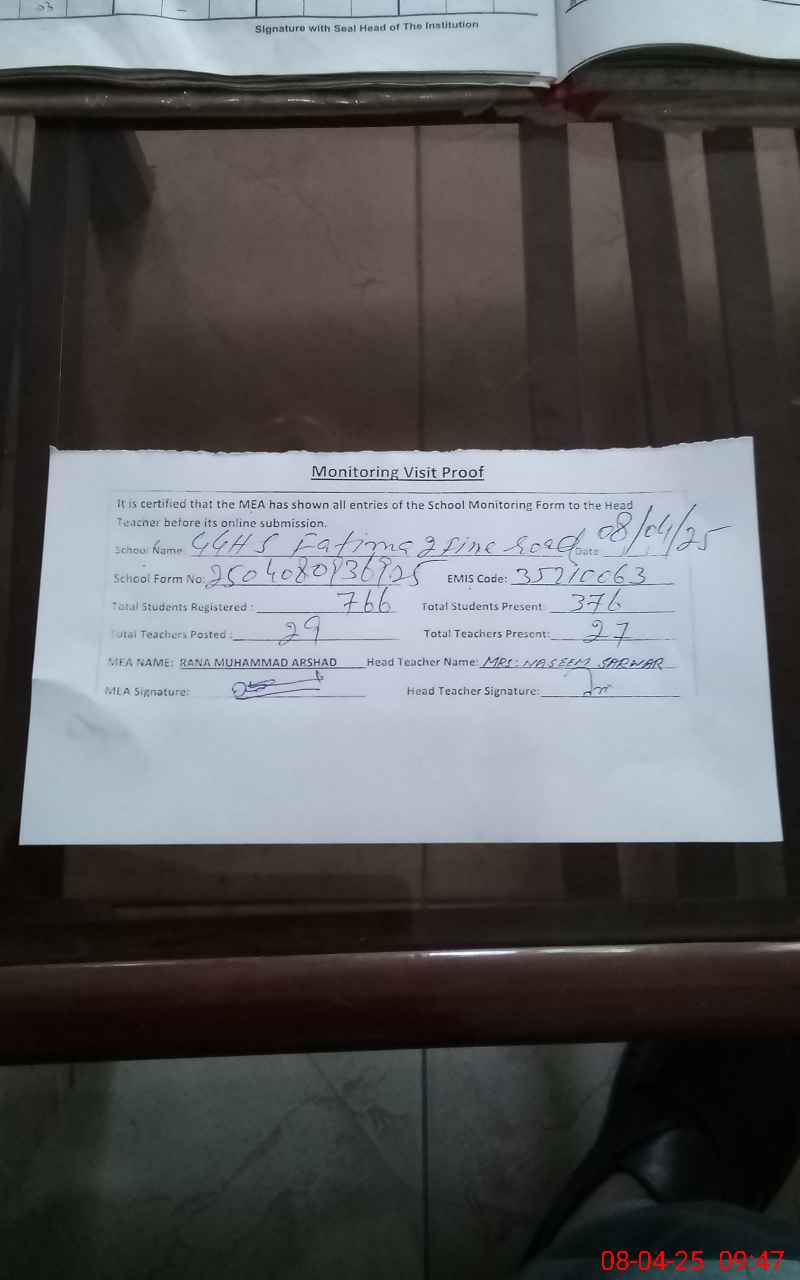 03
Signature with Seal Head of The Institution
Monitoring Visit Proof
It is certified that the MEA has shown all entries of the School Monitoring Form to the Head
Teacher before its online submission.
School Name: GGHS Fatima road Date 08/04/25
School Form No: EMIS Code: 35210063
Total Students Registered : 766 Total Students Present: 376
Total Teachers Posted : 29 Total Teachers Present: 27
MEA NAME: RANA MUHAMMAD ARSHAD Head Teacher Name: MRS: NASEEM SARWAR
MEA Signature: Head Teacher Signature:
08-04-25 09:47